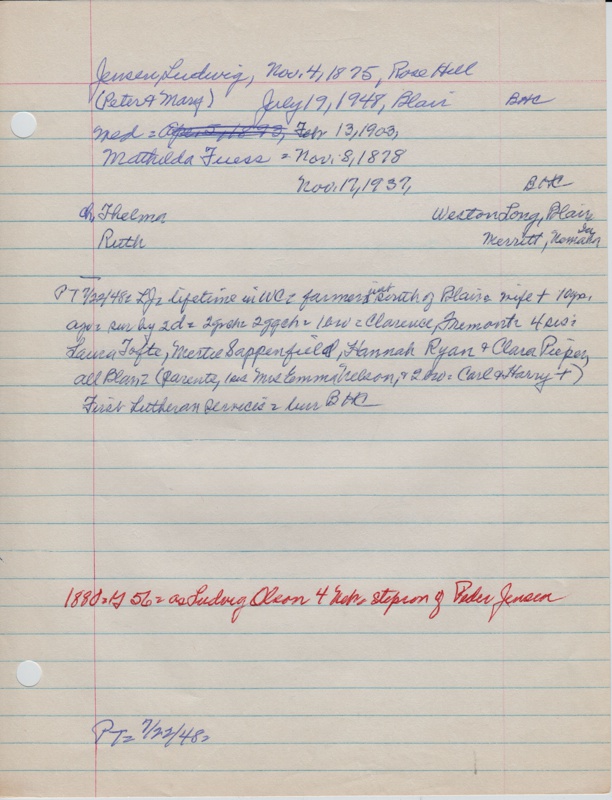 Jensen, Ludwig, Nov. 4, 1875, Rose Hill
(Peter & Mary) July 19, 1948, Blair BHC
med = Feb 13, 1903,
Mathilda Fuess = Nov. 8, 1878
Nov. 17, 1937, BHC
ch, Thelma Weston Long, Blair
Ruth Merritt, Iowa
PT 7/22/48 = LJ = lifetime in WC = farmer just south of Blair = wife + 10 yrs.
ago = sur by 2d = 2gch = 2ggch = 1 bro = Clarence, Fremont = 4 sis =
Laura Tofte, Mertie Sappenfield, Hannah Ryan & Clara Pieper,
all Blair (parents, 1 sis Mrs Emma Nelson, & 2 bro = Carl & Harry +)
First Lutheran services = bur BHC
1880 = 56 = as Ludwig Olson 4 Neb = stepson of Peder Jensen
PT = 7/22/48 =